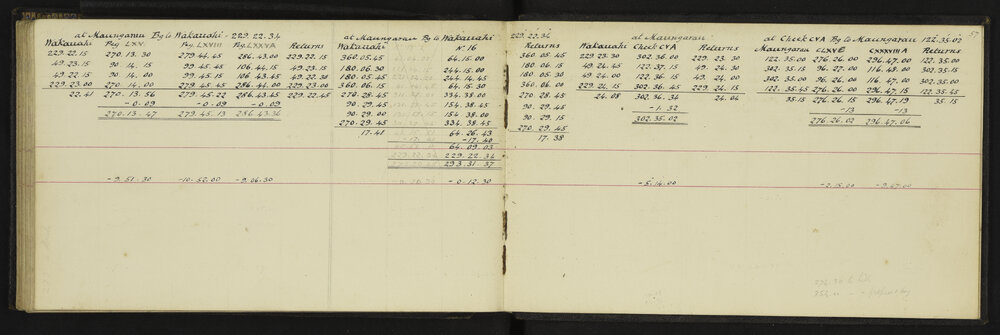 at Maungarau Bg to Wakauahi - 229.22.34
Wakauahi Peg LXV. Peg LXVIII Peg LXXXVA Returns
229.22.15 270.13.30 279.44.45 286.43.00 229.22.15
49.23.15 90.14.15 99.45.45 106.44.15 49.23.15
49.22.15 90.14.00 99.45.15 106.43.45 49.22.30
229.23.00 270.14.00 279.45.45 286.44.00 229.23.00
22.41 270.13.56 279.45.22 286.43.45 229.22.45
-0.09 -0.09 -0.09
270.13.47 279.45.13 286.43.36
-9.51.30 -10.52.00 -9.06.30
at Maungarau Bg to Wakauahi
Wakauahi No 16
360.05.45 64.15.00
180.06.30 244.15.00
180.05.45 244.14.45
360.06.15 64.15.30
270.28.45 334.38.00
90.29.45 154.38.45
90.29.00 154.38.00
270.29.45 334.38.45
17.41 64.26.43
-17.40
64.09.03
229.22.34
293.31.37
-0.12.30
229.22.34
Returns
360.05.45
180.06.15
180.05.30
360.06.00
270.28.45
90.29.45
90.29.15
270.29.45
17.38
at Maungarau
Wakauahi Check CVA Returns
229.23.30 302.36.00 229.23.30
49.24.45 122.37.15 49.24.30
49.24.00 122.36.15 49.24.00
229.24.15 302.36.45 229.24.15
24.08 302.36.34 24.04
-1.32
302.35.02
-5.14.00
at Check CVA Bg to Maungarau 122.35.02
Maungarau CLXVE CXXXVIIIA Returns
122.35.00 276.26.00 296.47.00 122.35.00
302.35.15 96.27.00 116.48.00 302.35.15
302.35.00 96.26.00 116.47.00 302.35.00
122.35.45 276.26.15 296.47.15 122.35.45
35.15 276.26.15 296.47.19 35.15
-13 -13
276.26.02 296.47.06
-2.15.00
57